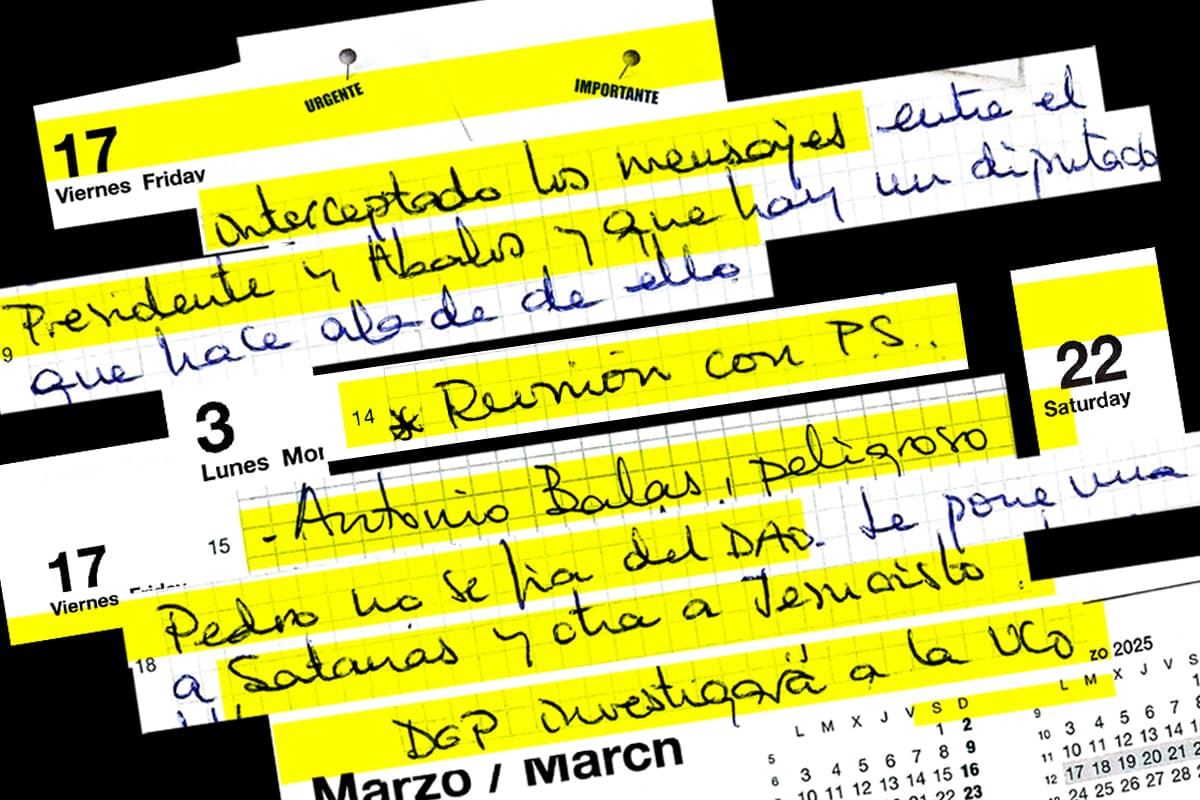 URGENTE IMPORTANTE
17
Viernes Friday
interceptado los mensajes entre el
Presidente y Abalos y que hay un diputado
9
que hace alarde de ello
3
Lunes Mon
14 * Reunión con P.S..
22
Saturday
- Antonio Balas, peligroso
15
17
Viernes Friday
Pedro no se fia del DAO. Le pone una
18
a Satanás y otra a Jesucristo
DGP investigará a la UCO
Marzo / March
L M X J V S D
5 1 2
6 3 4 5 6 7 8 9
10 11 12 13 14 15 16
21 22 23
zo 2025
L M X J V S
9 1
10 3 4 5 6 7 8
11 10 11 12 13 14 1
12 17 18 19 20 21 2
24 25 26 27 28